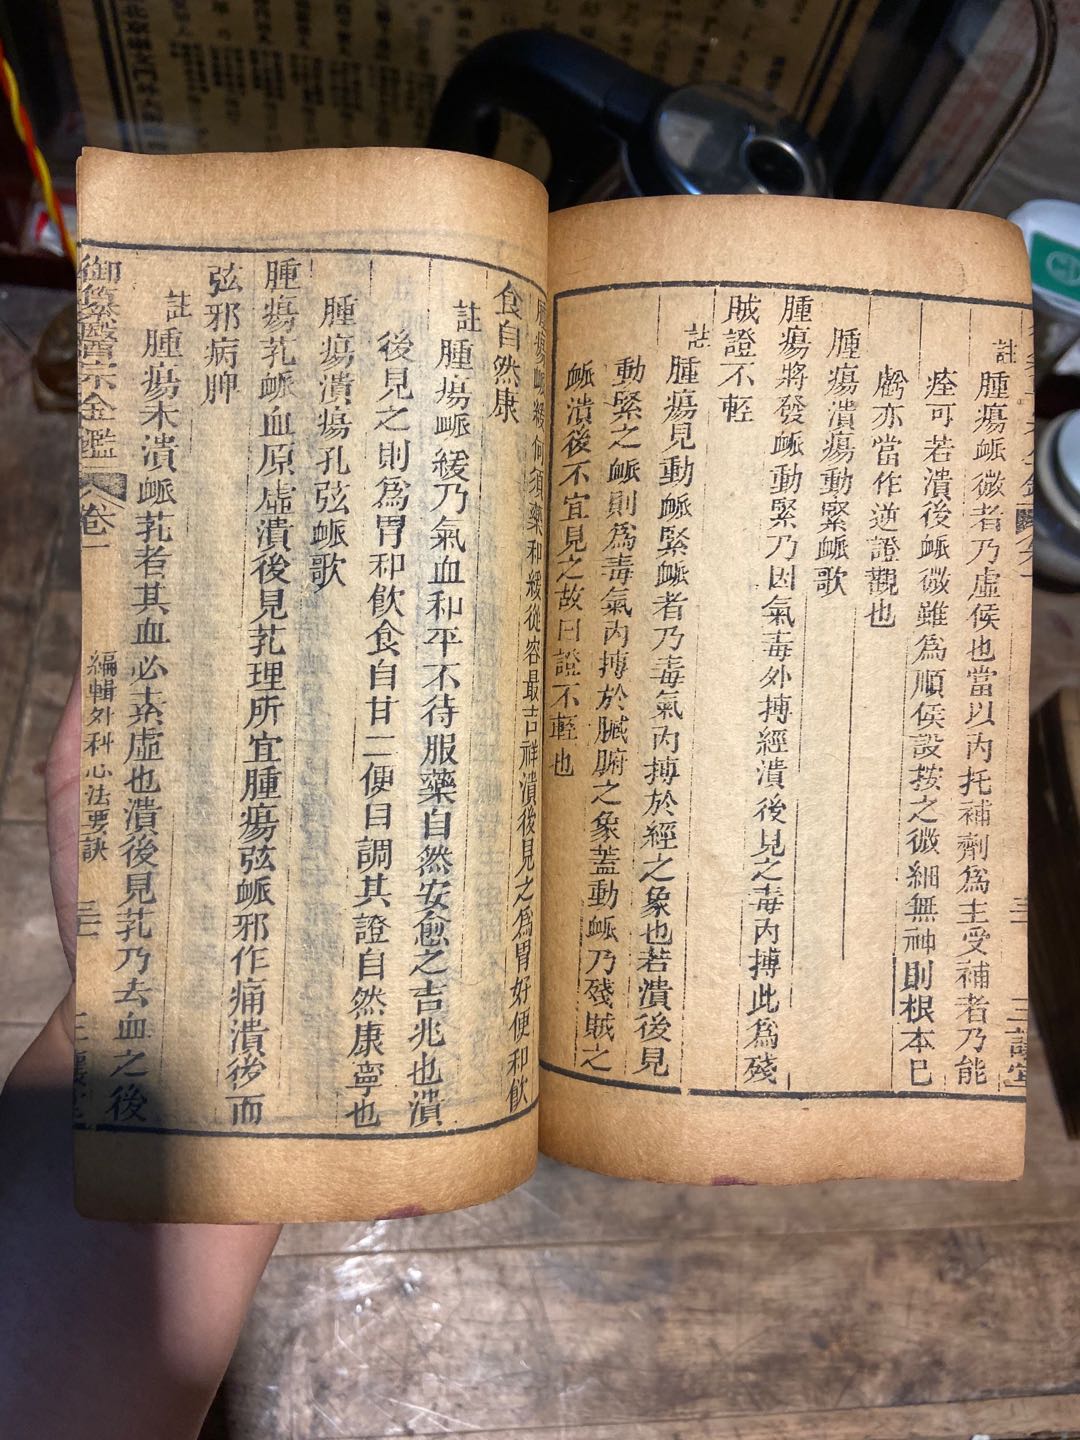 註腫瘍衇微者乃虛候也當以內托補劑爲主受補者乃能
痊可若潰後衇微雖爲順候設按之微細無神則根本已
虧亦當作逆證觀也
腫瘍潰瘍動緊衇歌
腫瘍將發衇動緊乃因氣毒外搏經潰後見之毒內搏此爲殘
賊證不輕
註腫瘍見動衇緊衇者乃毒氣內搏於經之象也若潰後見
動緊之衇則爲毒氣內搏於臟腑之象蓋動衇乃殘賊之
衇潰後不宜見之故曰證不輕也
腫瘍衇緩何須藥和緩從容最吉祥潰後見之爲胃好便和飲
食自然康
註腫瘍衇緩乃氣血和平不待服藥自然安愈之吉兆也潰
後見之則爲胃和飲食自甘二便自調其證自然康寧也
腫瘍潰瘍孔弦衇歌
腫瘍芤衇血原虛潰後見芤理所宜腫瘍弦衇邪作痛潰後而
弦邪病脾
註腫瘍未潰衇芤者其血必素虛也潰後見芤乃去血之後
御纂醫宗金鑑 卷一 編輯外科心法要訣 三